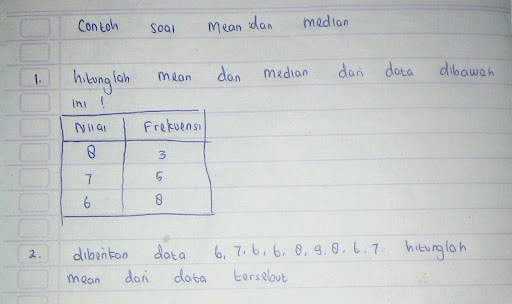 Contoh soal mean dan median
1. hitunglah mean dan median dari data dibawah
ini !
Nilai Frekuensi
8 3
7 5
6 8
2. diberikan data 6, 7, 6, 6, 8, 9, 8, 6, 7. hitunglah
mean dari data tersebut